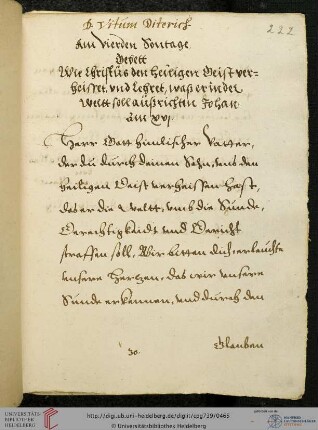 D Vitum Diterich 222
Am vierden Sontage
Gebett
Wie Christus den heiligen Geist ver-
heisset, vnd Lehret, waß er in der
Weltt soll außrichten Johan
am XVI.
Herr Gott himlischer Vatter,
der du durch deinen Sohn, vns den
heiligen Geist verheissen hast,
das er die weltt, vmb die Sünde,
Gerechtigkeidt vnd Gericht
straffen soll, Wir bitten dich erleuchte
vnsere Hertzen, das wir vnsere
Sünde erkennen, vnd durch den
30. Glauben
UNIVERSITÄTS-
BIBLIOTHEK
HEIDELBERG
http://digi.ub.uni-heidelberg.de/diglit/cpg729/0465
© Universitätsbibliothek Heidelberg